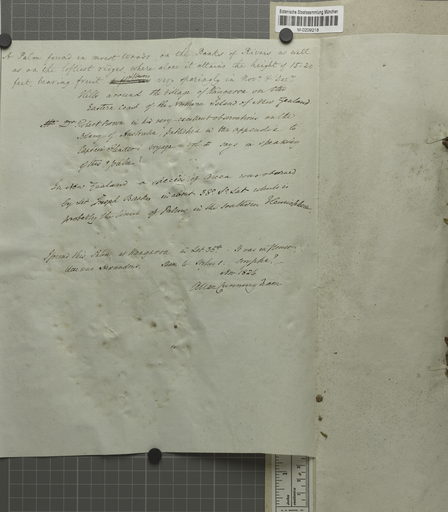 Botanische Staatssammlung München
M-0209218
A Palm found in most woods on the Banks of Rivers as well
as on the loftiest ridges where alone it attains the height of 15-20
feet bearing fruit very sparingly in Novr & Decr
Hills around the Village of Wangaroa on the
Eastern coast of the Northern Island of New Zealand
Mr. Robt Brown in his very excellent observations on the
Botany of Australia, published in the appendix to
Captain Flinders voyage says in speaking
of the Palmae!
In New Zealand a species of Areca was observed
by Sir Joseph Banks in about 38° S. Lat which is
probably the limit of Palms in the Southern Hemisphere
found this at Wangaroa in Lat 35° It was in flower
Stam. 6
Nov 1826
Allan Cunningham